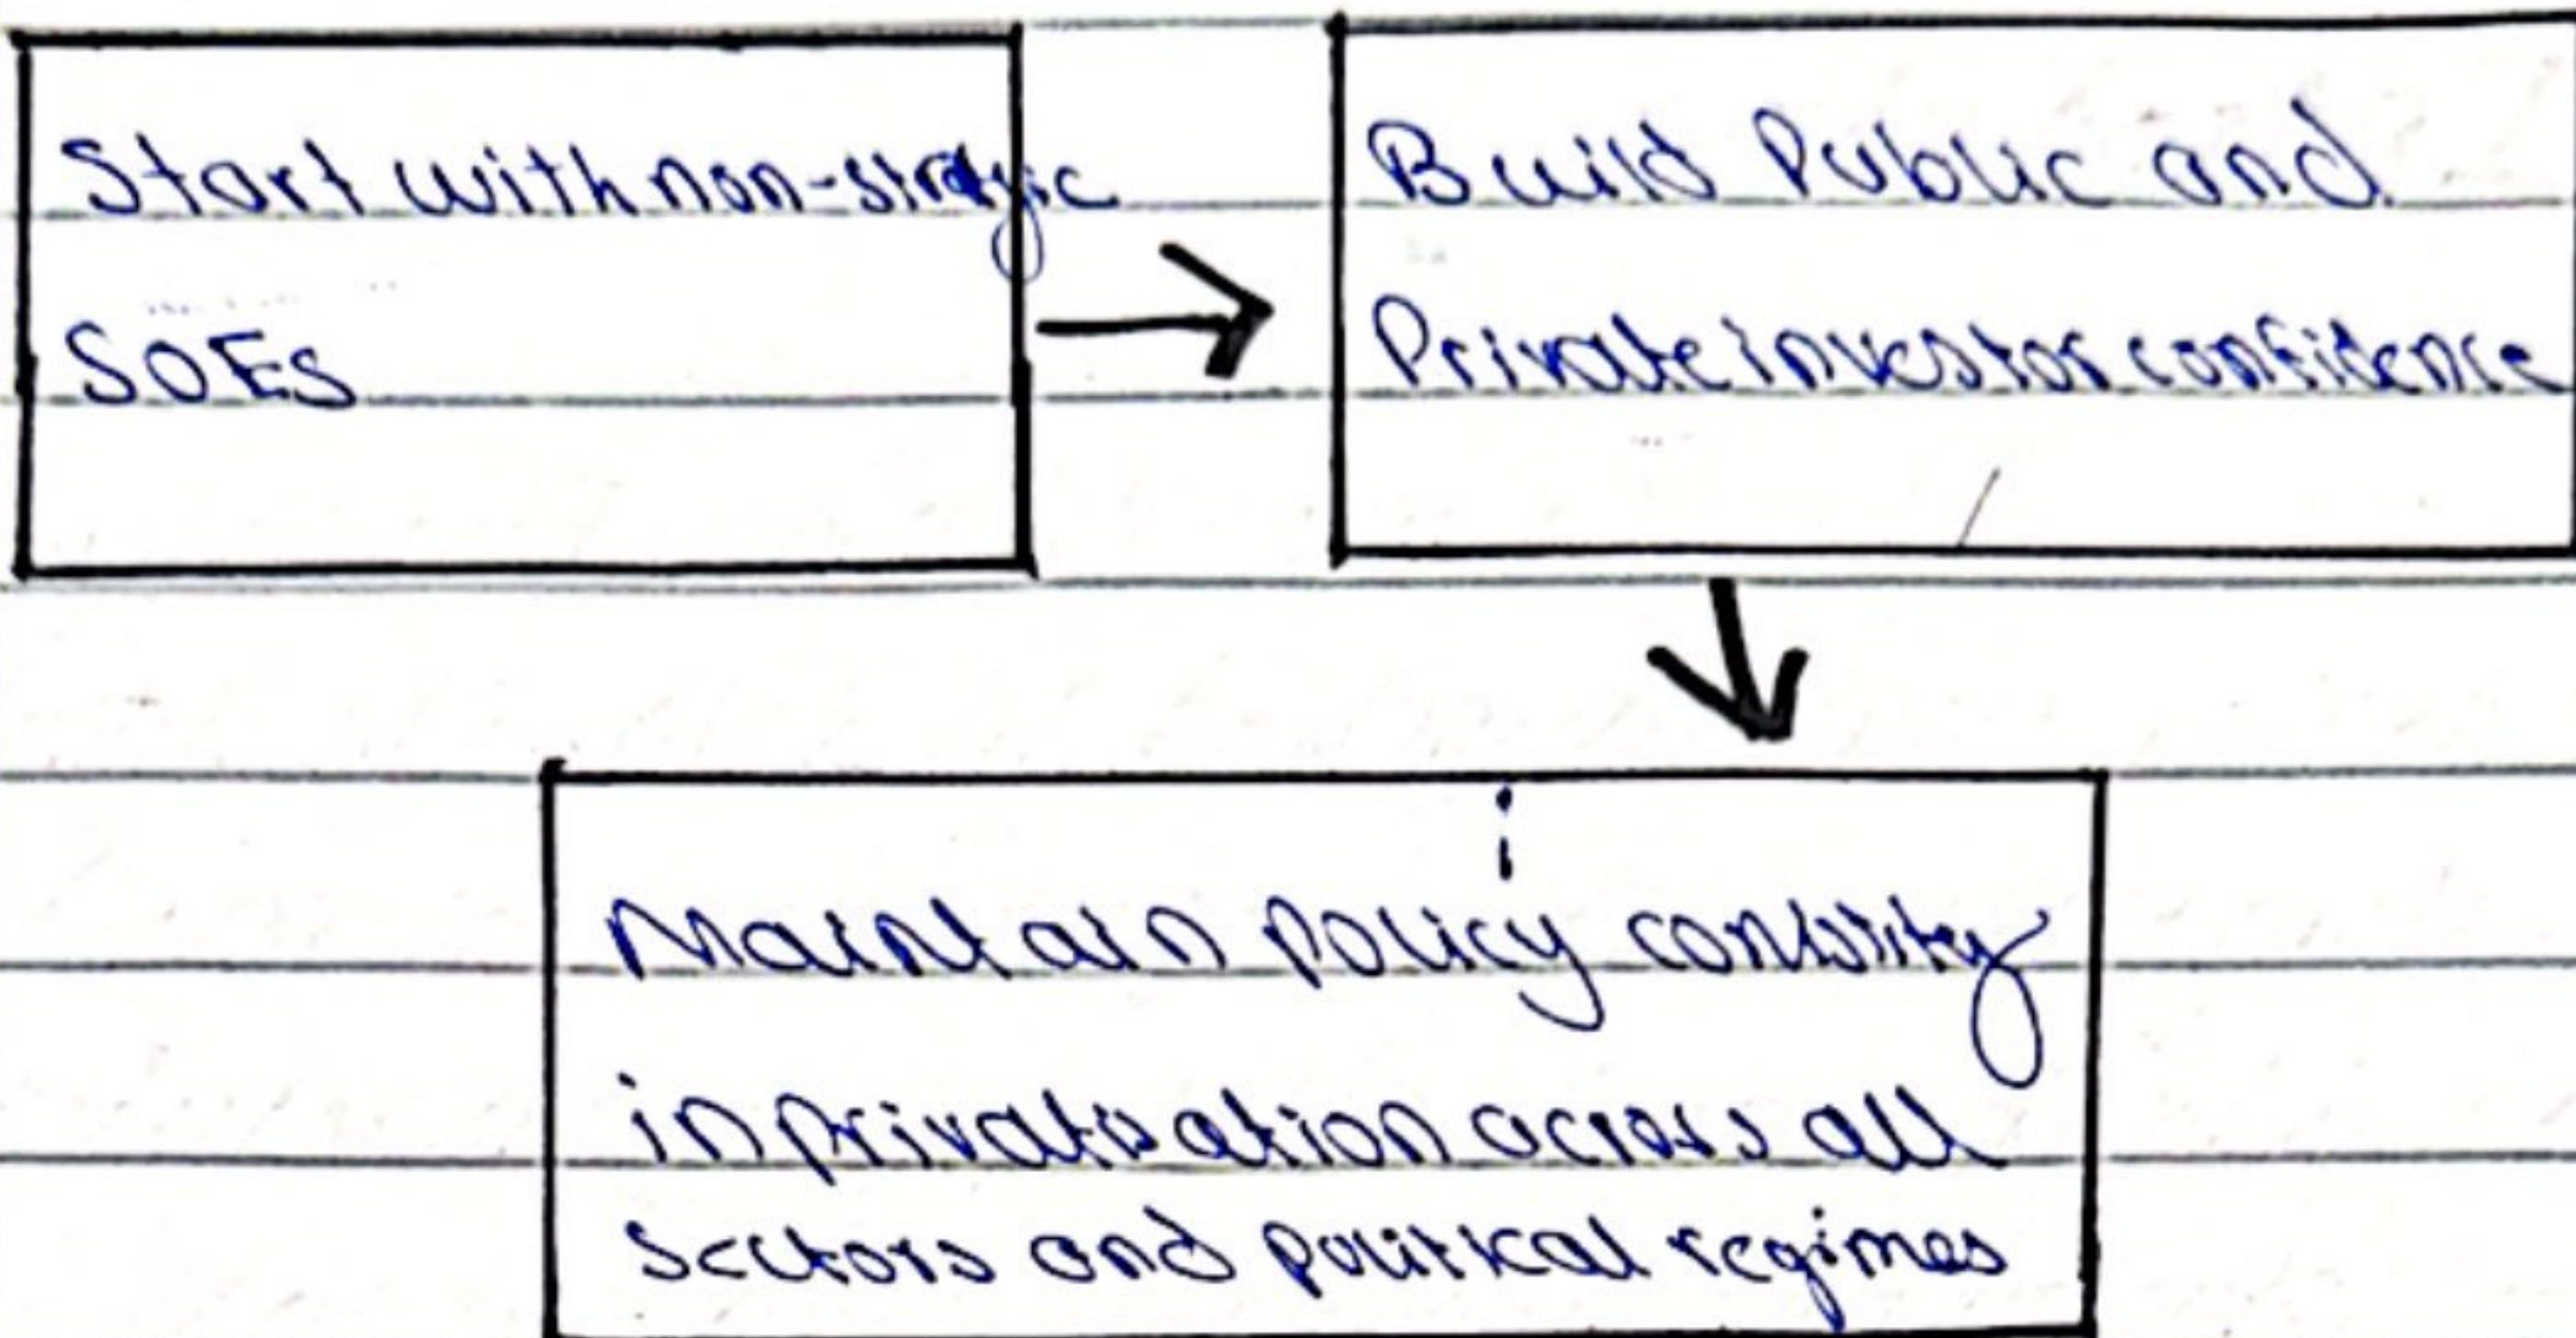 Start with non-strategic
SOEs
Build Public and
Private investor confidence
Maintain policy
in privatisation across all
sectors and political regimes